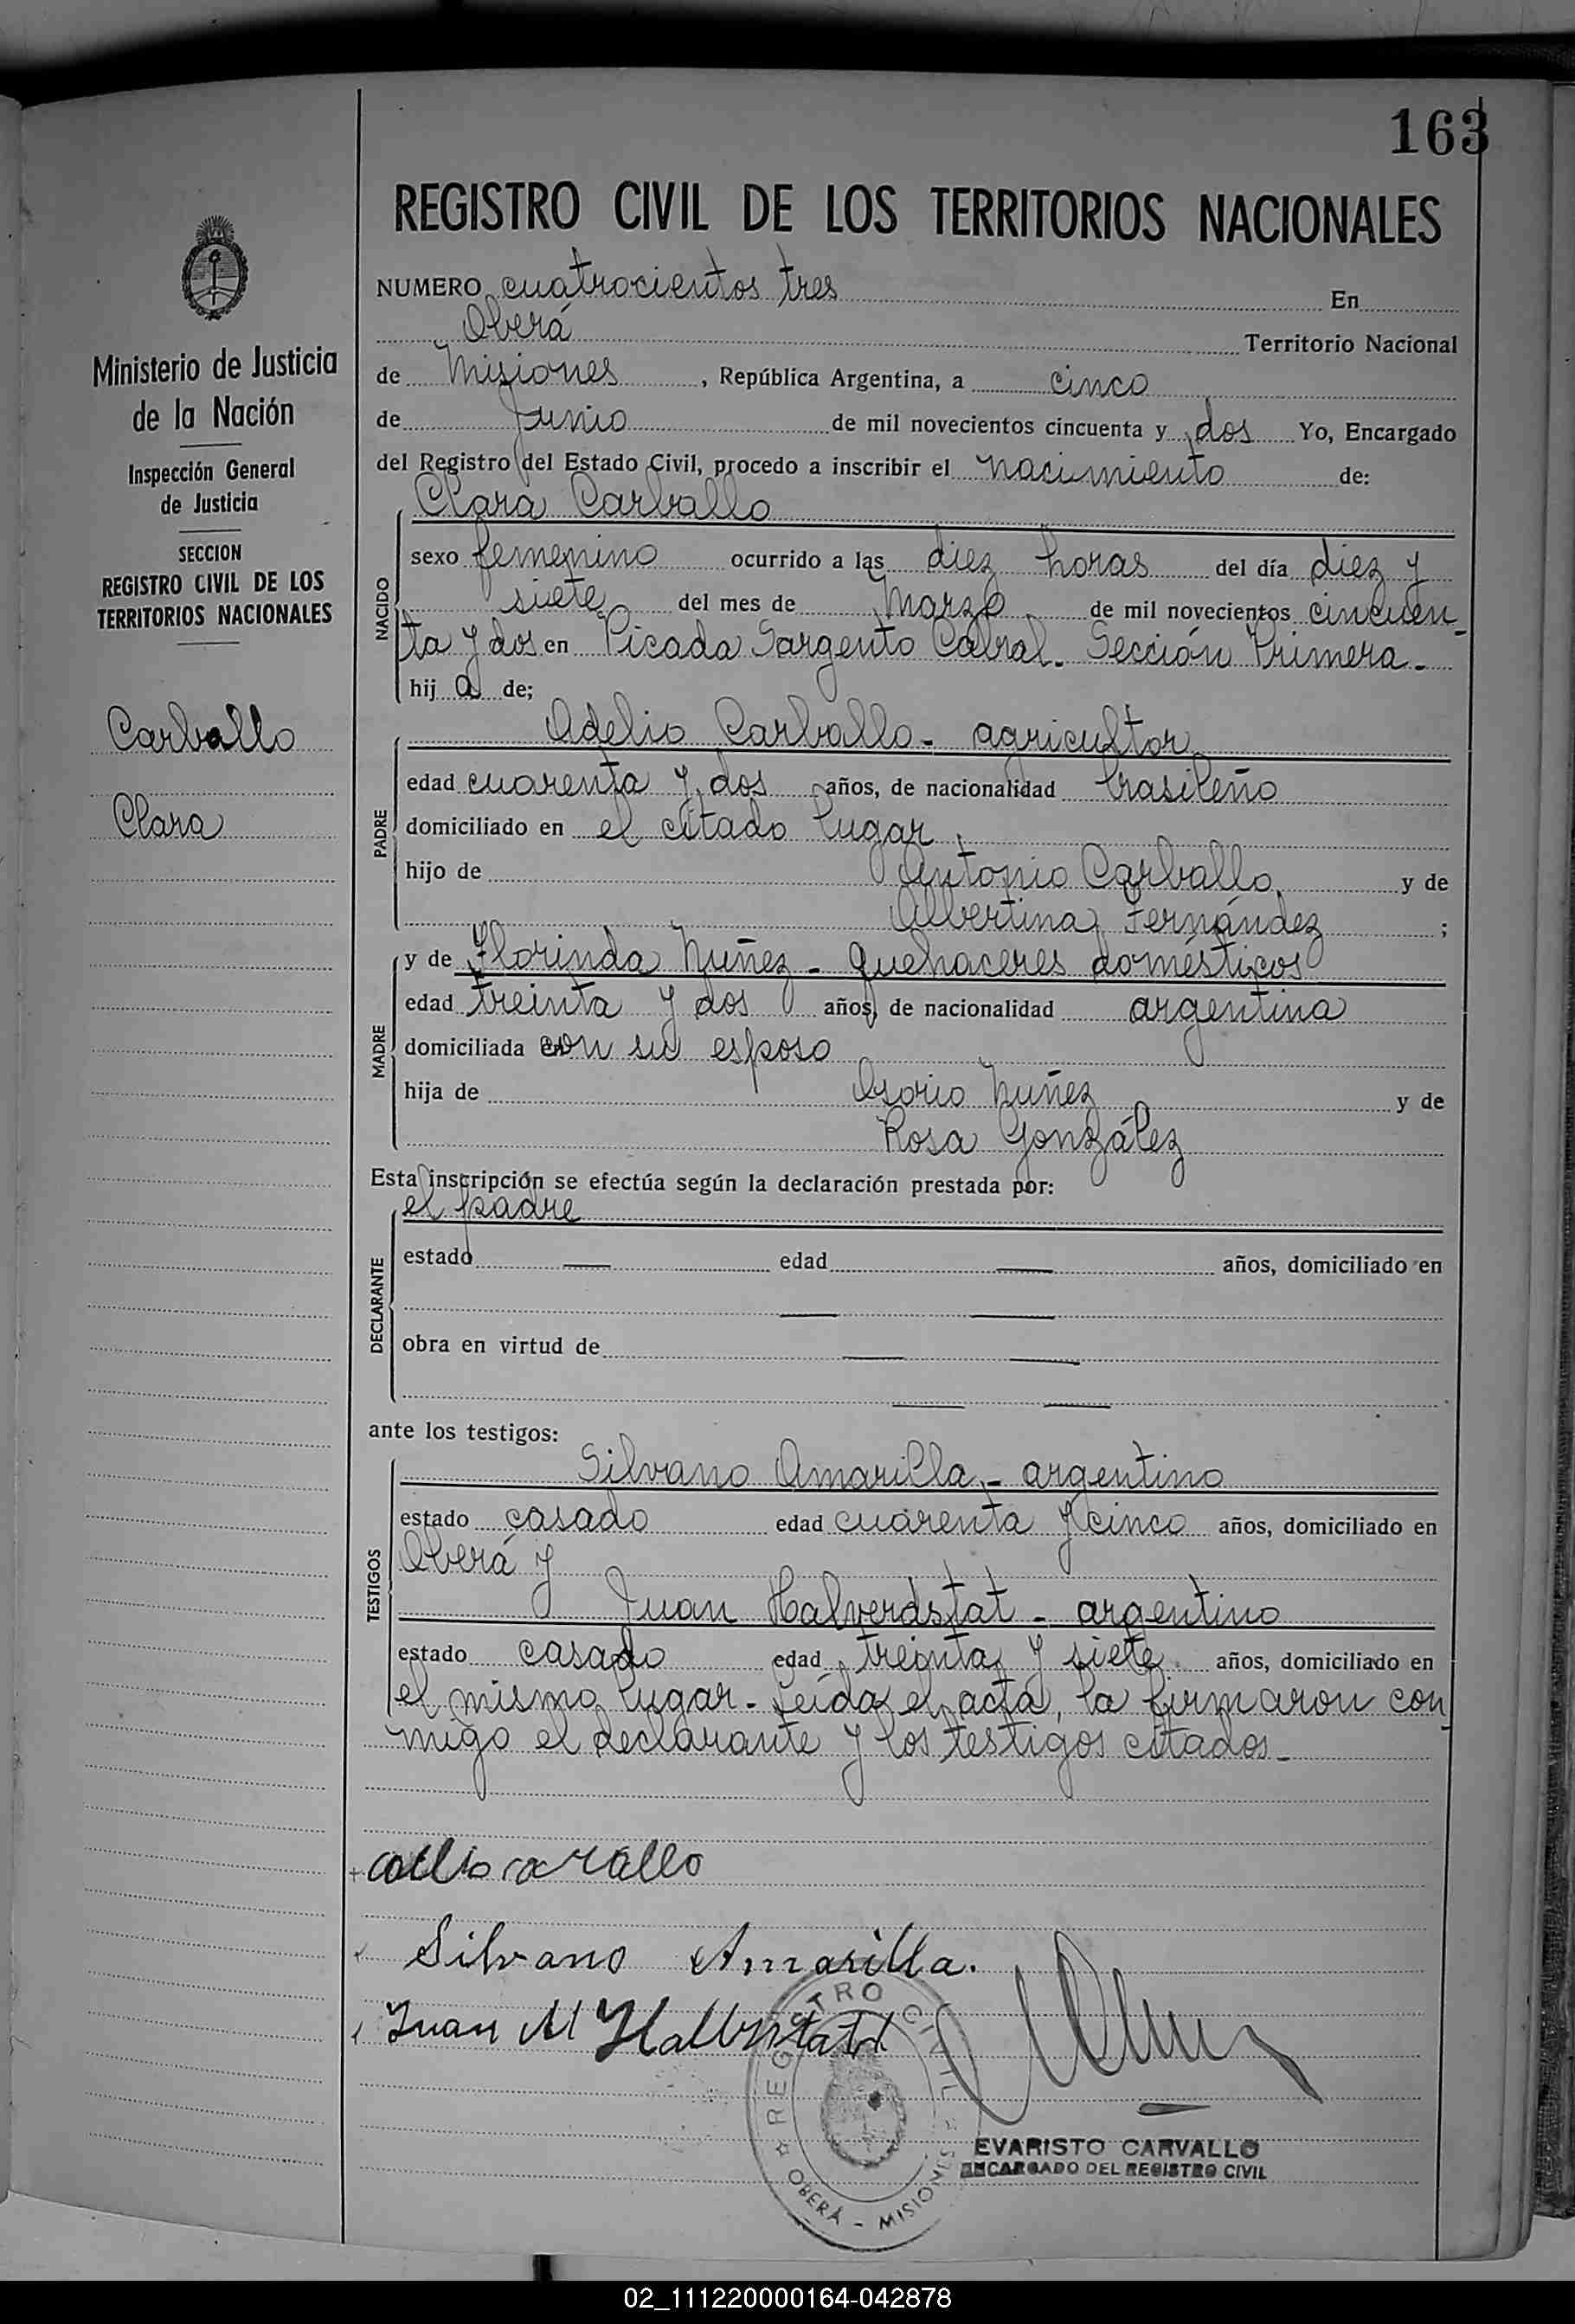 163
REGISTRO CIVIL DE LOS TERRITORIOS NACIONALES
Ministerio de Justicia
de la Nación
Inspección General
de Justicia
SECCION
REGISTRO CIVIL DE LOS
TERRITORIOS NACIONALES
Carballo
Clara
NUMERO cuatrocientos tres En
Oberá Territorio Nacional
de Misiones, República Argentina, a cinco
de Junio de mil novecientos cincuenta y dos Yo, Encargado
del Registro del Estado Civil, procedo a inscribir el nacimiento de:
Clara Carballo
NACIDO
sexo femenino ocurrido a las diez horas del día diez y
siete del mes de Marzo de mil novecientos cincuen-
ta y dos en Picada Sargento Cabral. Sección Primera.-
hij a de;
Adelio Carballo - agricultor
PADRE
edad cuarenta y dos años, de nacionalidad brasileño
domiciliado en el citado lugar
hijo de Antonio Carballo y de
Albertina Fernández ;
MADRE
y de Florinda Nuñez - quehaceres domésticos
edad treinta y dos años, de nacionalidad argentina
domiciliada con su esposo
hija de Osorio Nuñez y de
Rosa González
Esta inscripción se efectúa según la declaración prestada por:
el padre
DECLARANTE
estado — edad — años, domiciliado en
— —
obra en virtud de — —
— —
ante los testigos:
Silvano Amarilla - argentino
TESTIGOS
estado casado edad cuarenta y cinco años, domiciliado en
Oberá y
Juan Halverdstat - argentino
estado casado edad treinta y siete años, domiciliado en
el mismo lugar - Leída el acta, la firmaron con-
migo el declarante y los testigos citados -
Silvano Amarilla.
Juan M
REGISTRO CIVIL
OBERÁ - MISIONES
EVARISTO CARVALLO
ENCARGADO DEL REGISTRO CIVIL
02_111220000164-042878